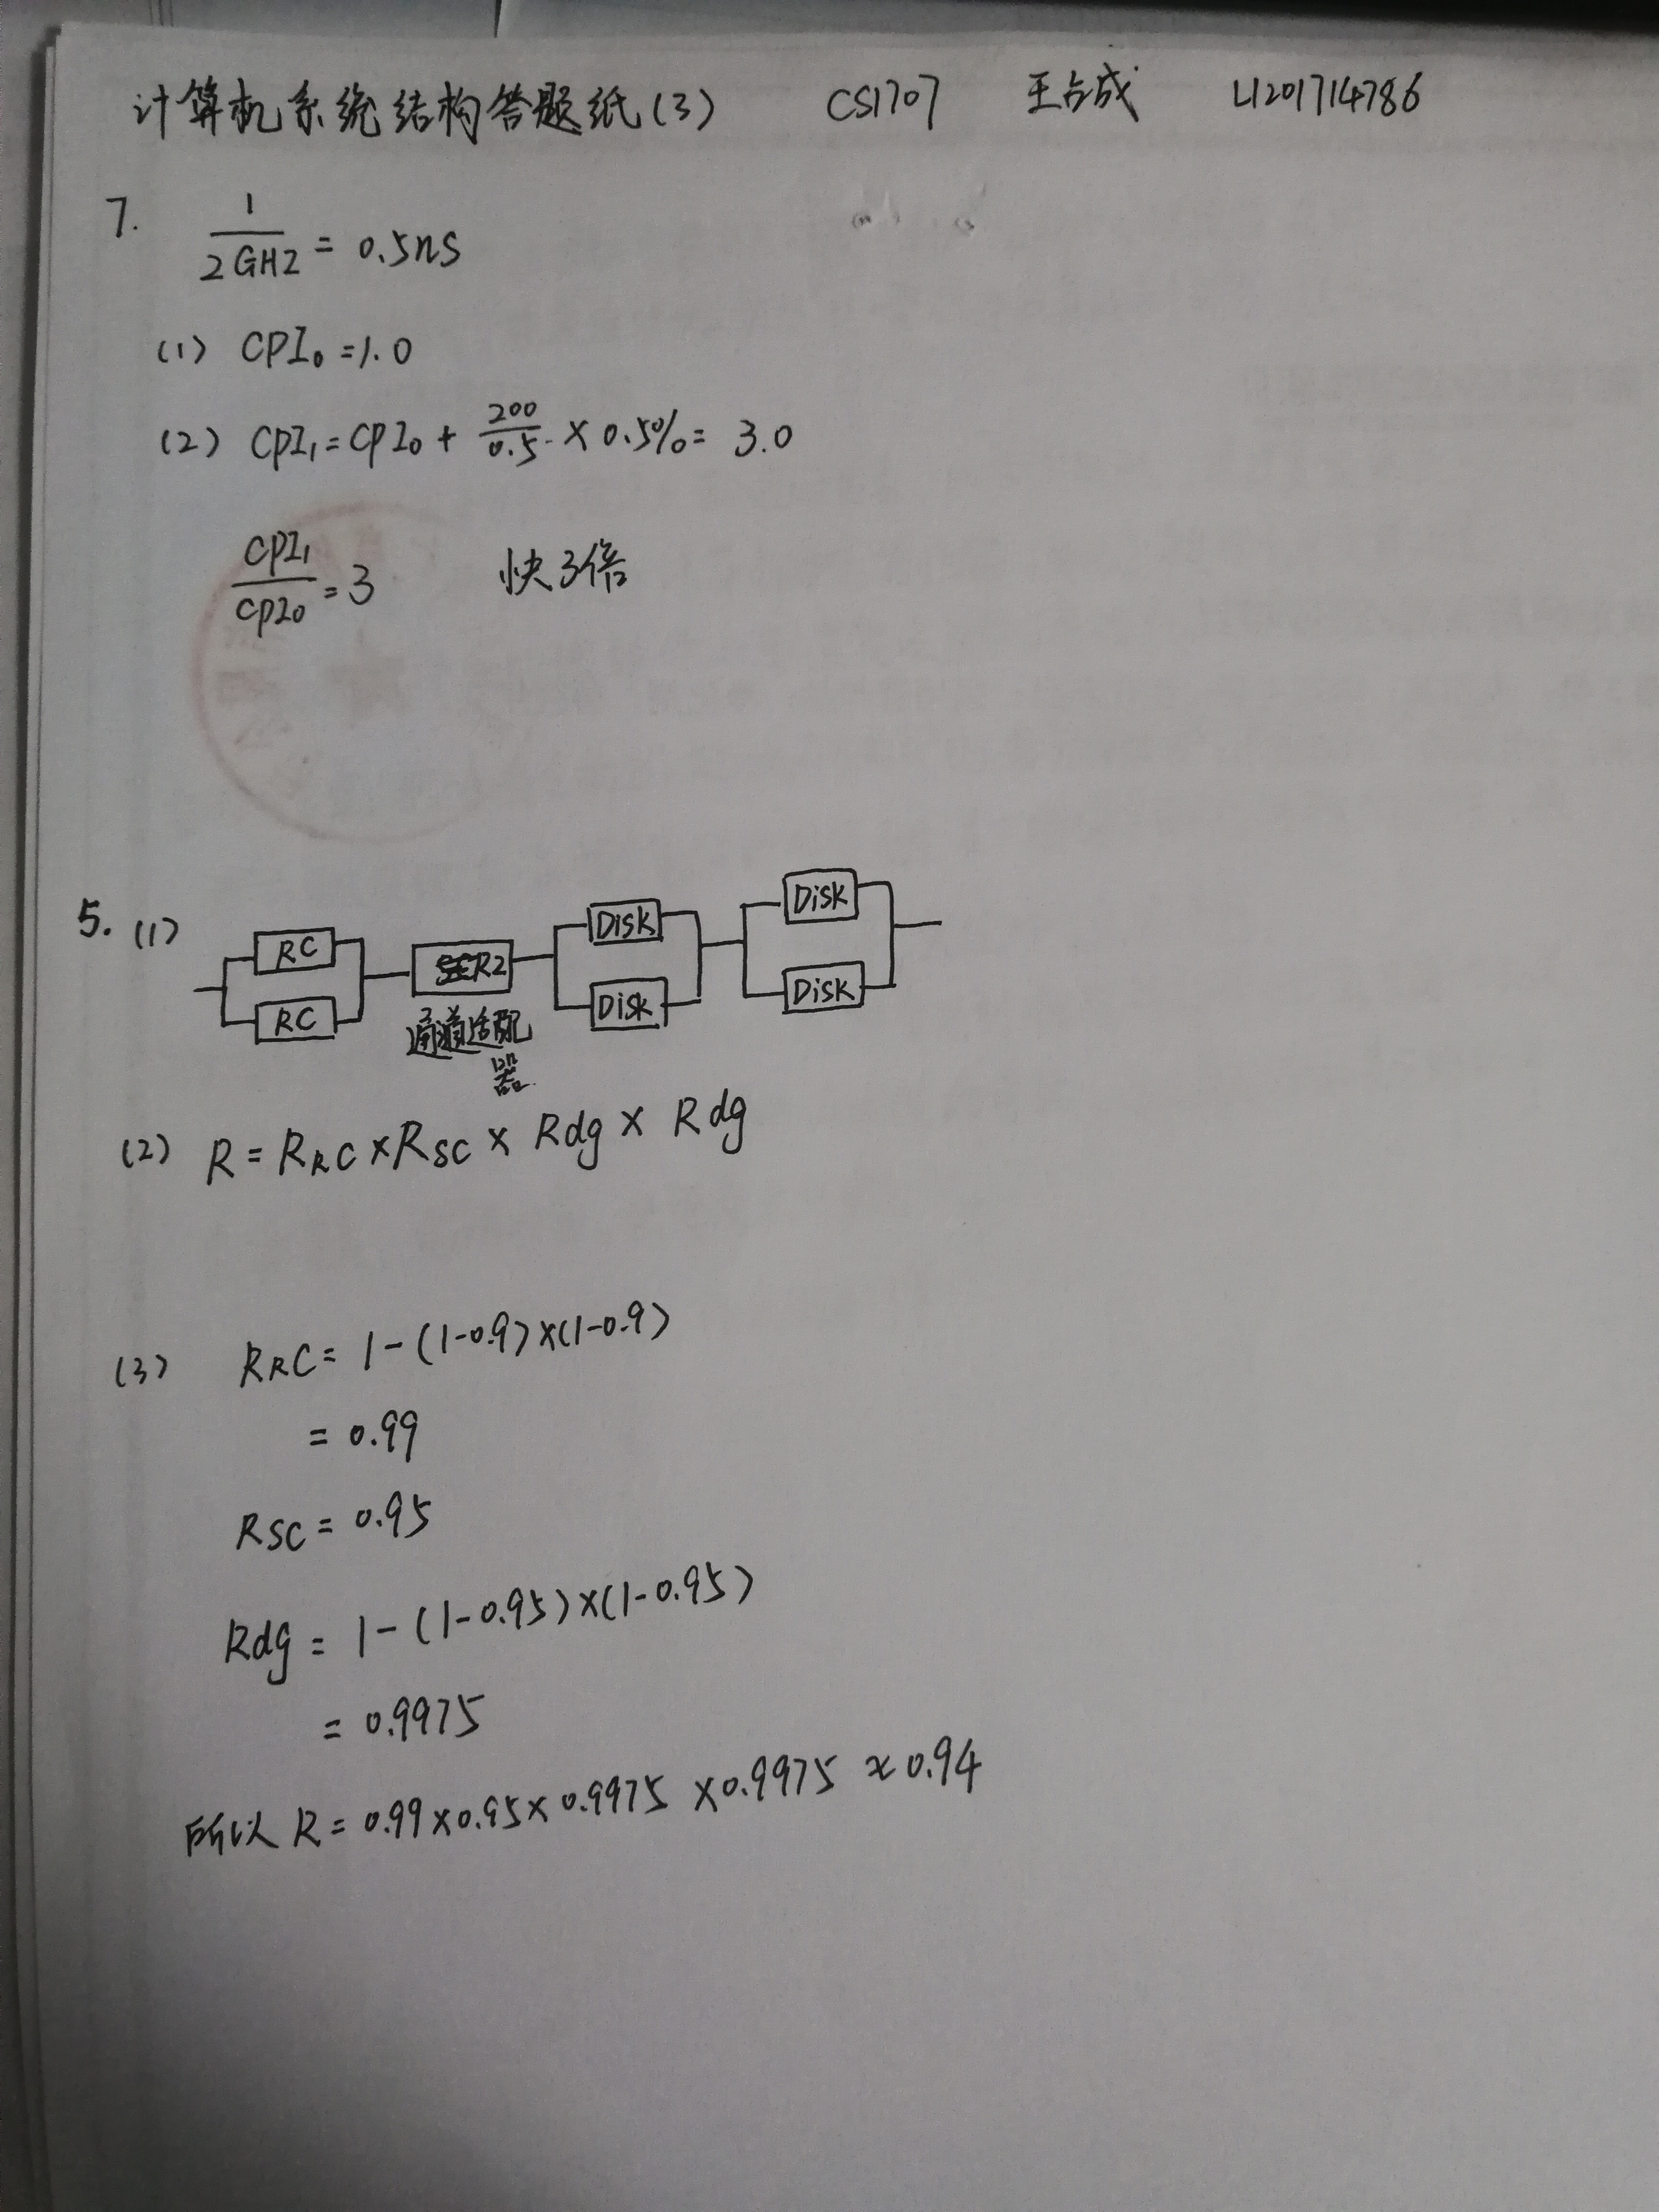 计算机系统结构答题纸(3) CS1707 王占成 U201714786
7. 1/2GHZ = 0.5ns
(1) CPI₀ = 1.0
(2) CPI₁ = CPI₀ + 200/0.5 × 0.5% = 3.0
CPI₁/CPI₀ = 3 快3倍
5. (1)
RC RC
R2
通道适配器
Disk Disk
Disk Disk
(2) R = RRC × RSC × Rdg × Rdg
(3) RRC = 1-(1-0.9)×(1-0.9)
= 0.99
RSC = 0.95
Rdg = 1-(1-0.95)×(1-0.95)
= 0.9975
所以 R = 0.99×0.95×0.9975×0.9975 ≈ 0.94